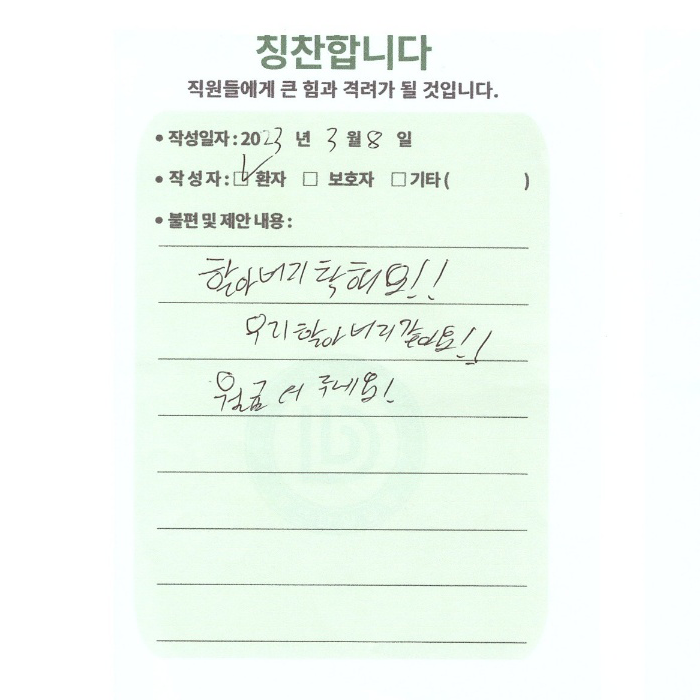 칭찬합니다
직원들에게 큰 힘과 격려가 될 것입니다.
• 작성일자 : 2023 년 3 월 8 일
• 작 성 자 : ☑ 환자 □ 보호자 □ 기타 ( )
• 불편 및 제안 내용 :
할아버지 착해요!!
우리 할아버지 같아요!!
월급 더 주세요!